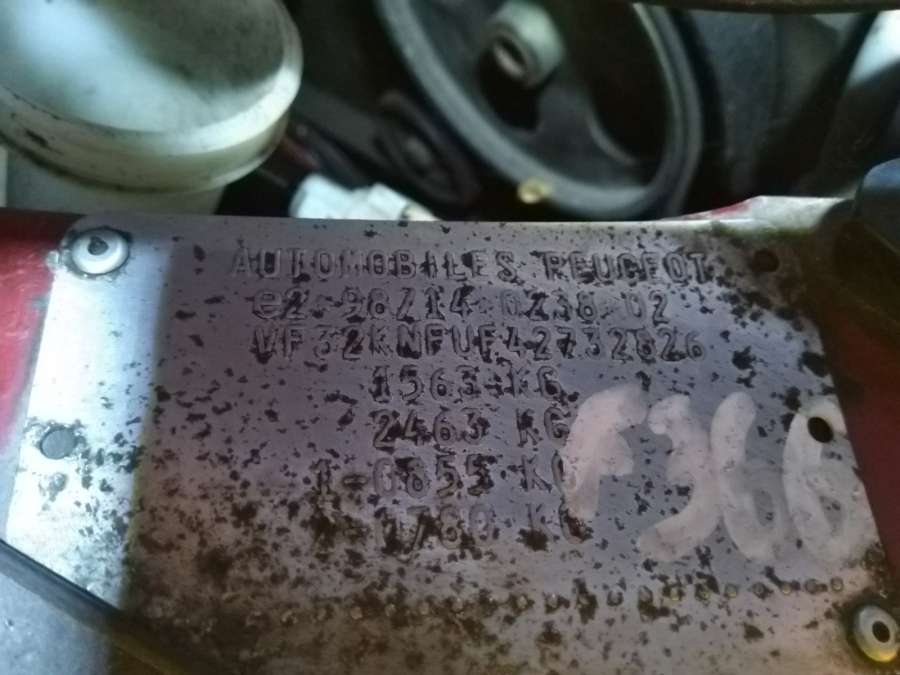 AUTOMOBILES PEUGEOT
e2*98/14*0238*02
VF32KNFUF42732826
1563 KG
2463 KG
1-0855 KG
2-0780 KG
F366